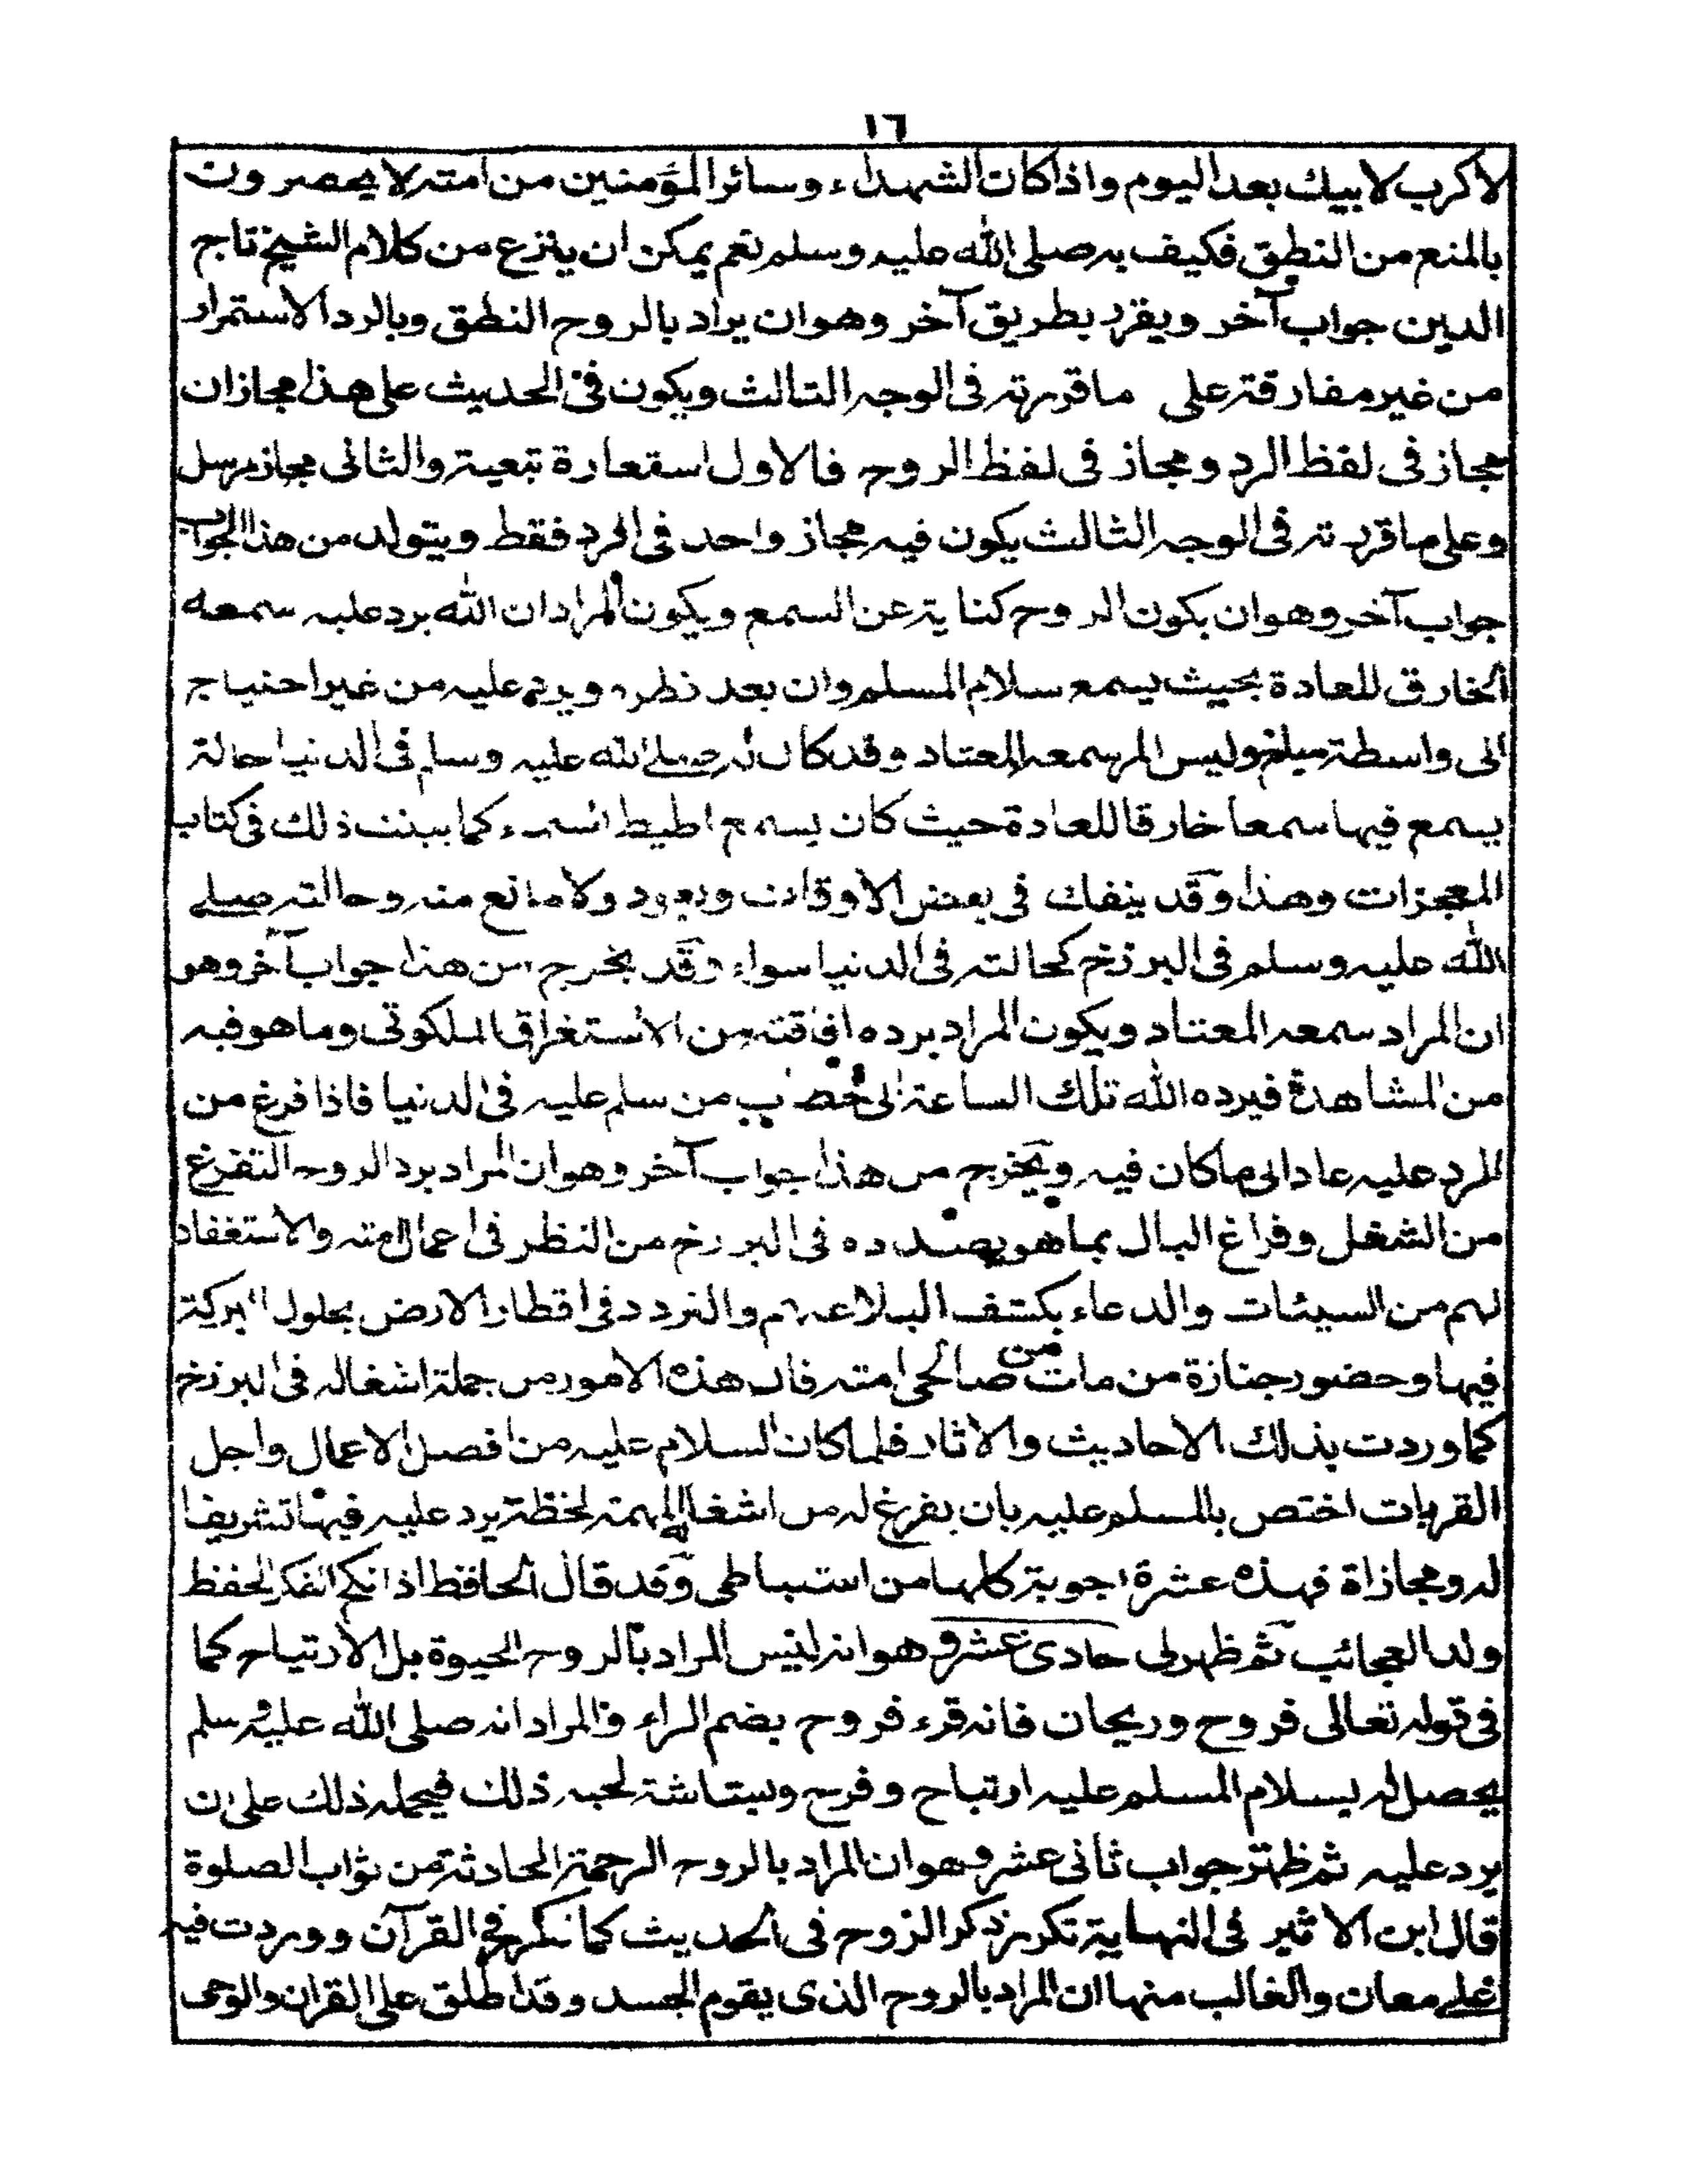 ١٦
لاكرب لابيك بعد اليوم واذا كان الشهداء وسائر المؤمنين من امته لا يحصرون
بالمنع من النطق فكيف به صلى الله عليه وسلم نعم يمكن ان ينزع من كلام الشيخ تاج
الدين جواب آخر ويقرر بطريق آخر وهو ان يراد بالروح النطق وبالرد الاستمرار
من غير مفارقة على ما قررته فى الوجه الثالث ويكون فى الحديث على هذا مجازان
مجاز فى لفظ الرد ومجاز فى لفظ الروح فالاول استعارة تبعية والثانى مجاز مرسل
وعلى ما قررته فى الوجه الثالث يكون فيه مجاز واحد فى الرد فقط ويتولد من هذا الجواب
جواب آخر وهو ان يكون الروح كناية عن السمع ويكون المراد ان الله يرد عليه سمعه
الخارق للعادة بحيث يسمع سلام المسلم وان بعد نظره ويرد عليه من غير احتياج
الى واسطة مبلغ وليس المر سمعه المعتاد وقد كان له صلى الله عليه وسلم فى الدنيا حالة
يسمع فيها سمعا خارقا للعادة حيث كان يسمع اطيط السماء كما بينت ذلك فى كتاب
المعجزات وهذا وقد ينفك فى بعض الاوقات ويعود ولا مانع منه وحالته صلى
الله عليه وسلم فى البرزخ كحالته فى الدنيا سواء وقد يخرج من هذا جواب آخر وهو
ان المراد سمعه المعتاد ويكون المراد برده افاقته من الاستغراق الملكوتى وما هو فيه
من المشاهدة فيرده الله تلك الساعة الى خطاب من سلم عليه فى الدنيا فاذا فرغ من
الرد عليه عاد الى ما كان فيه ويخرج من هذا جواب آخر وهو ان المراد برد الروح التفرغ
من الشغل وفراغ البال بما هو بصدده فى البرزخ من النظر فى اعمال امته والاستغفار
لهم من السيئات والدعاء بكشف البلاء عنهم والتردد فى اقطار الارض بحلول البركة
فيها وحضور جنازة من مات من صالحى امته فان هذه الامور من جملة اشغاله فى البرزخ
كما وردت بذلك الاحاديث والاثار فلما كان السلام عليه من افضل الاعمال واجل
القربات اختص بالمسلم عليه بان يفرغ له من اشغاله المهمة لحظة يرد عليه فيها تشريفا
له ومجازاة فهذه عشرة اجوبة كلها من استنباطى وقد قال الحافظ اذا نكح الفكر الحفظ
ولد العجائب ثم ظهر لى حادى عشر وهو انه ليس المراد بالروح الحيوة بل الارتياح كما
فى قوله تعالى فروح وريحان فانه قرء فروح بضم الراء والمراد انه صلى الله عليه وسلم
يحصل له بسلام المسلم عليه ارتياح وفرح وبشاشة لحبه ذلك فيحمله ذلك على ان
يرد عليه ثم ظهر جواب ثانى عشر وهو ان المراد بالروح الرحمة الحادثة من ثواب الصلوة
قال ابن الاثير فى النهاية تكرر ذكر الروح فى الحديث كما تكرر فى القرآن ووردت فيه
على معان والغالب منها ان المراد بالروح الذى يقوم الجسد وقد اطلق على القران والوحى